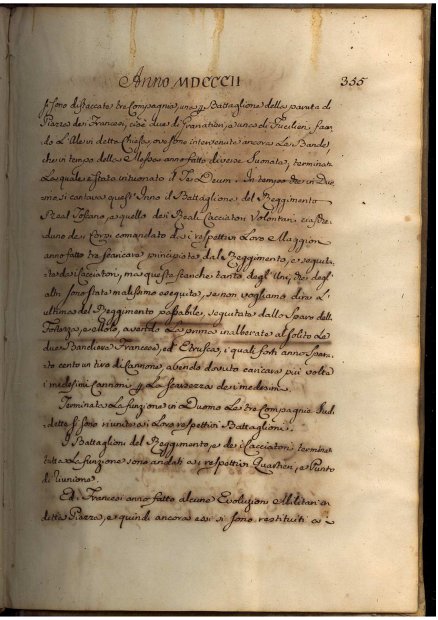 Anno MDCCCII 355
si sono distaccate tre Compagnie una p Battaglione dalla parata di
Piazza dei Francesi, cioè due di Granatieri, e una di Fucilieri, facen
do l'Ale in detta Chiesa, ove sono intervenute ancora Le Bande
che in tempo della Messa anno fatto diverse Suonate, terminata
La quale è stato intuonato il Te Deum. In tempo che in Duo
mo si cantava quest'Inno il Battaglione del Reggimento
Real Toscano, e quello dei Reali Cacciatori Volontari, ciasche
duno dei Corpi comandato dai respettivi Loro Maggiori
anno fatto tre scariche principiate dal Reggimento, e seguita
te dai Cacciatori, ma queste scariche tanto degli Uni, che degl'
altri sono state malissimo eseguite, se non vogliamo dire L'
ultima del Reggimento passabile, seguitate dallo Sparo della
Fortezza, e Molo, avendo La prima inalberate al solito Le
due Bandiere Francese, ed Etrusca, i quali forti anno spara
to cento un tiro di Cannone, avendo dovuto caricare più volte
i medesimi Cannoni p La scarsezza dei medesimi.
Terminata La funzione in Duomo Le tre Compagnie Sud
dette si sono riunite ai Loro respettivi Battaglioni.
I Battaglioni del Reggimento, e dei Cacciatori termina
ta La funzione sono andati ai respettivi Quartieri, e Punto
di riunione.
Ed i Francesi anno fatto alcune Evoluzioni Militari in
detta Piazza, e quindi ancora essi si sono restituiti ai